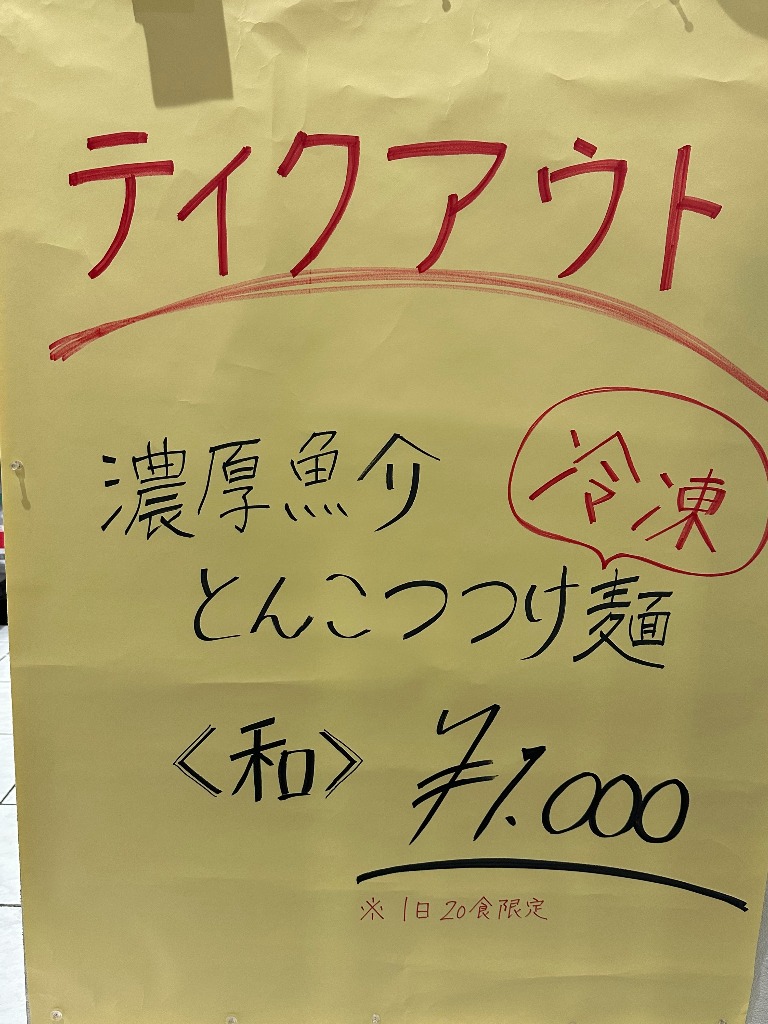 テイクアウト
濃厚魚介
冷凍
とんこつつけ麺
《和》 ¥1.000
※ 1日20食限定